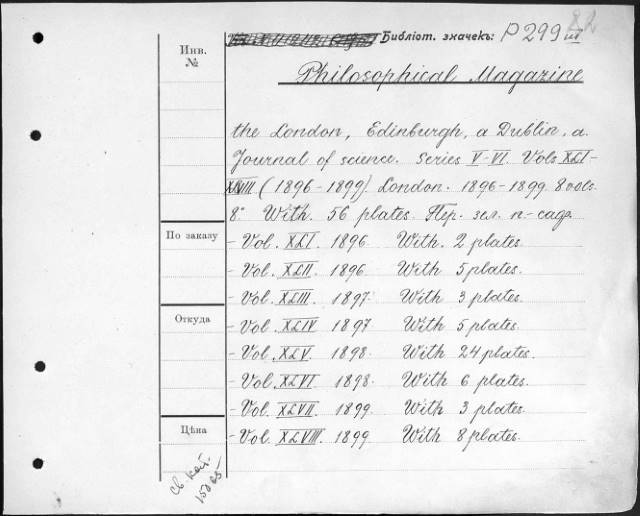 Инв. №
Библіот. значекъ: P 299
Philosophical Magazine
the London, Edinburgh, a Dublin, a.
Journal of science. Series V-VI. Vols XLI-
XLVIII (1896-1899). London. 1896-1899. 8 vols.
8º With. 56 plates. Пер. зел. п-саф.
По заказу
- Vol. XLI. 1896. With. 2 plates.
- Vol. XLII. 1896. With 5 plates.
- Vol. XLIII. 1897. With 3 plates.
Откуда
- Vol. XLIV 1897 With 5 plates.
- Vol. XLV. 1898. With 24 plates.
- Vol. XLVI 1898. With 6 plates.
- Vol. XLVII. 1899. With 3 plates.
Цѣна
- Vol. XLVIII. 1899 With 8 plates.
св. кат.